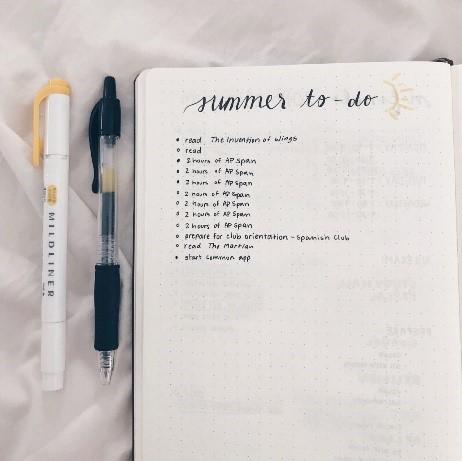 summer to-do
read The Invention of Wings
read
2 hours of AP Span
2 hours of AP Span
2 hours of AP Span
2 hours of AP Span
2 hours of AP Span
2 hours of AP Span
2 hours of AP Span
prepare for club orientation - Spanish Club
read The Martian
start common app
MILDLINER